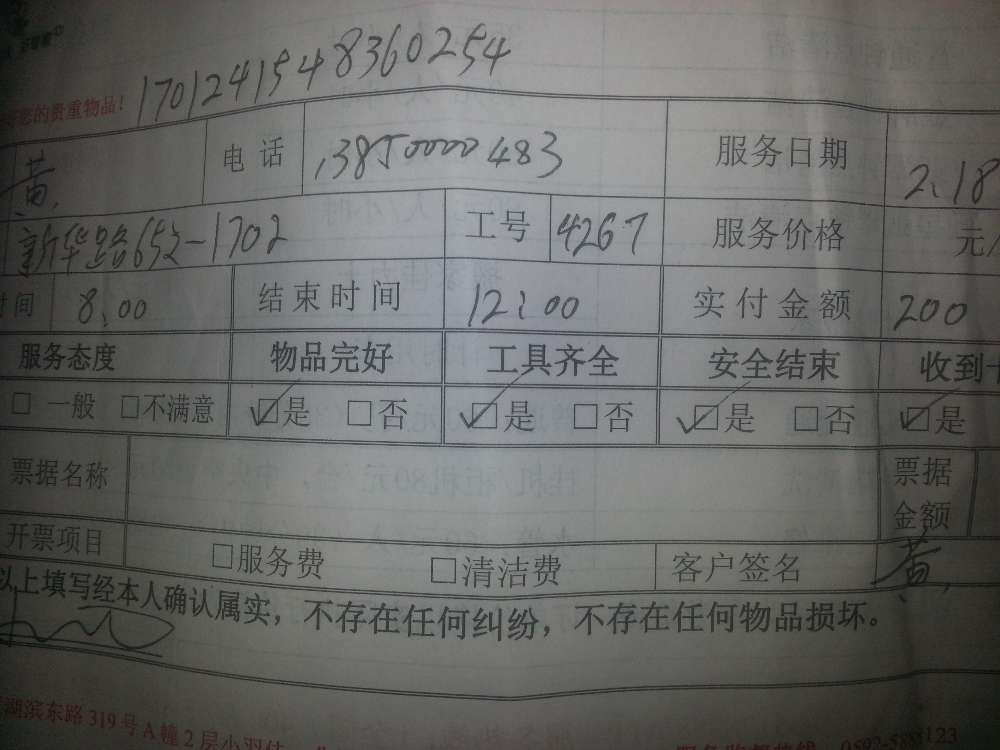 1701241548360254
您的贵重物品!
黄 电话 13850000483 服务日期 2.18
新华路652-1702 工号 4267 服务价格 元/
时间 8:00 结束时间 12:00 实付金额 200
服务态度 物品完好 工具齐全 安全结束 收到
□一般 □不满意 ☑是 □否 ☑是 □否 ☑是 □否 ☑是
票据名称 票据金额
开票项目 □服务费 □清洁费 客户签名 黄
以上填写经本人确认属实，不存在任何纠纷，不存在任何物品损坏。
湖滨东路319号A幢2层小羽佳